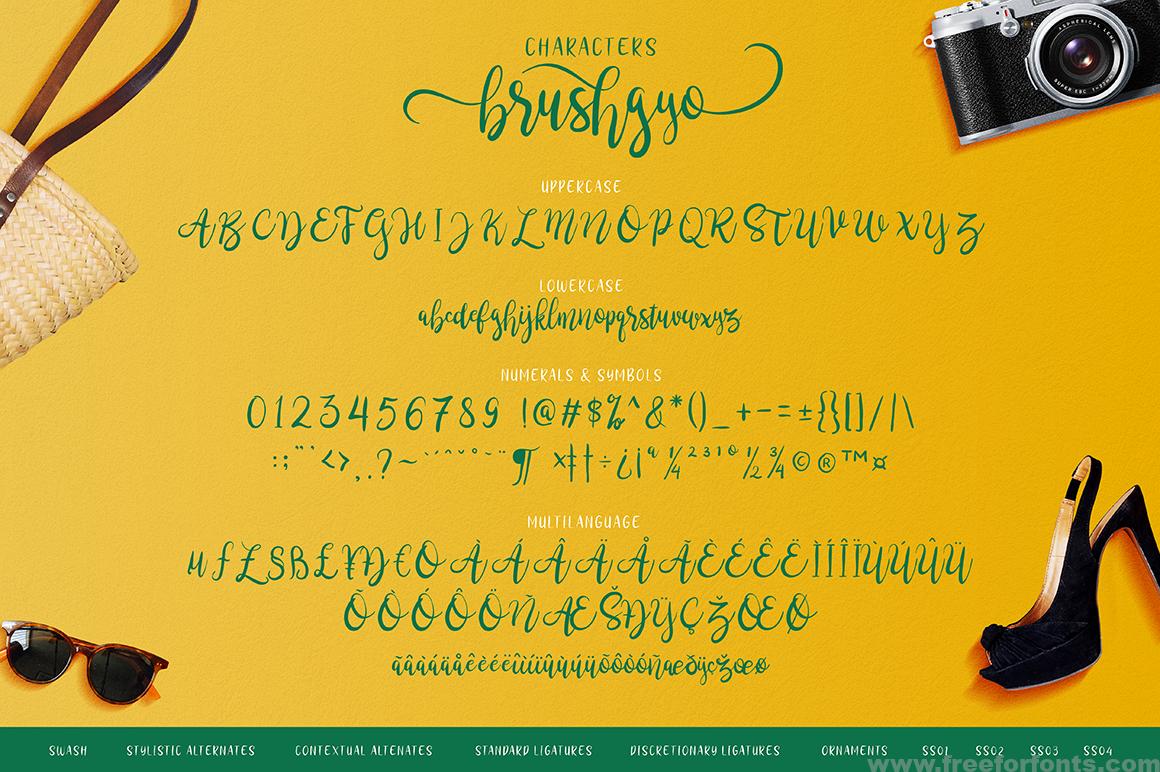 CHARACTERS
brushgyo
ASPHERICAL LENS
SUPER EBC
UPPERCASE
ABCDEFGHIJKLMNOPQRSTUVWXYZ
LOWERCASE
abcdefghijklmnopqrstuvwxyz
NUMERALS & SYMBOLS
0123456789 !@#$%^&*()_+-=±{}[]/|\
:;"'<>,.?~¶×‡†÷¿¡ª¼²³¹º½¾©®™¤
MULTILANGUAGE
ÀÁÂÄÅÃÈÉÊËÌÍÎÏÙÚÛÜ
ÕÒÓÔÖÑÆŠÐŸÇŽŒØ
ãâàáäåêèéëîìíïûùúüõôòóñæðÿçžœø
SWASH STYLISTIC ALTERNATES CONTEXTUAL ALTENATES STANDARD LIGATURES DISCRETIONARY LIGATURES ORNAMENTS SS01 SS02 SS03 SS04
www.freeforfonts.com